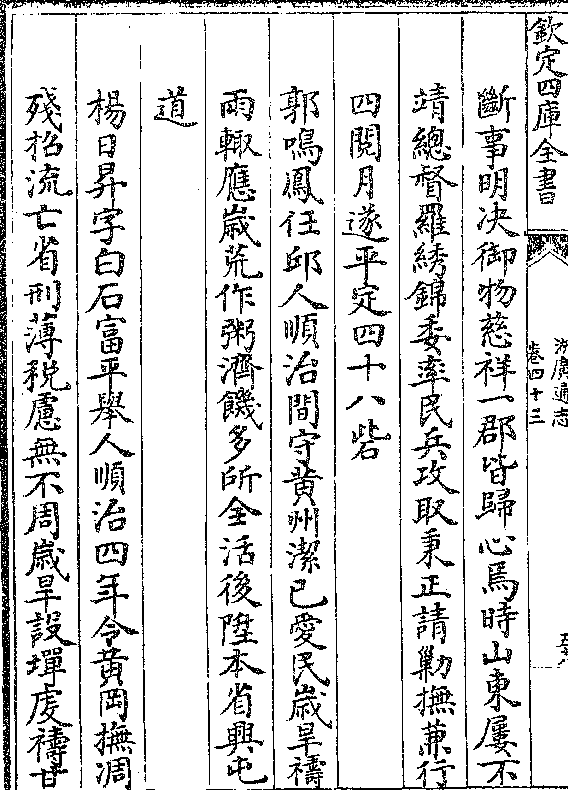 欽定四庫全書
湖廣通志
卷四十三
斷事明决御物慈祥一郡皆歸心焉時山東屢不
靖總督羅綉錦委率民兵攻取秉正請勦撫兼行
四閱月遂平定四十八砦
郭鳴鳳任邱人順治間守黄州潔已愛民歳旱禱
雨輙應歳荒作粥濟饑多所全活後陞本省興屯
道
楊日昇字白石富平舉人順治四年令黄岡撫凋
殘招流亡省刑薄税慮無不周歳旱設墠䖍禱甘